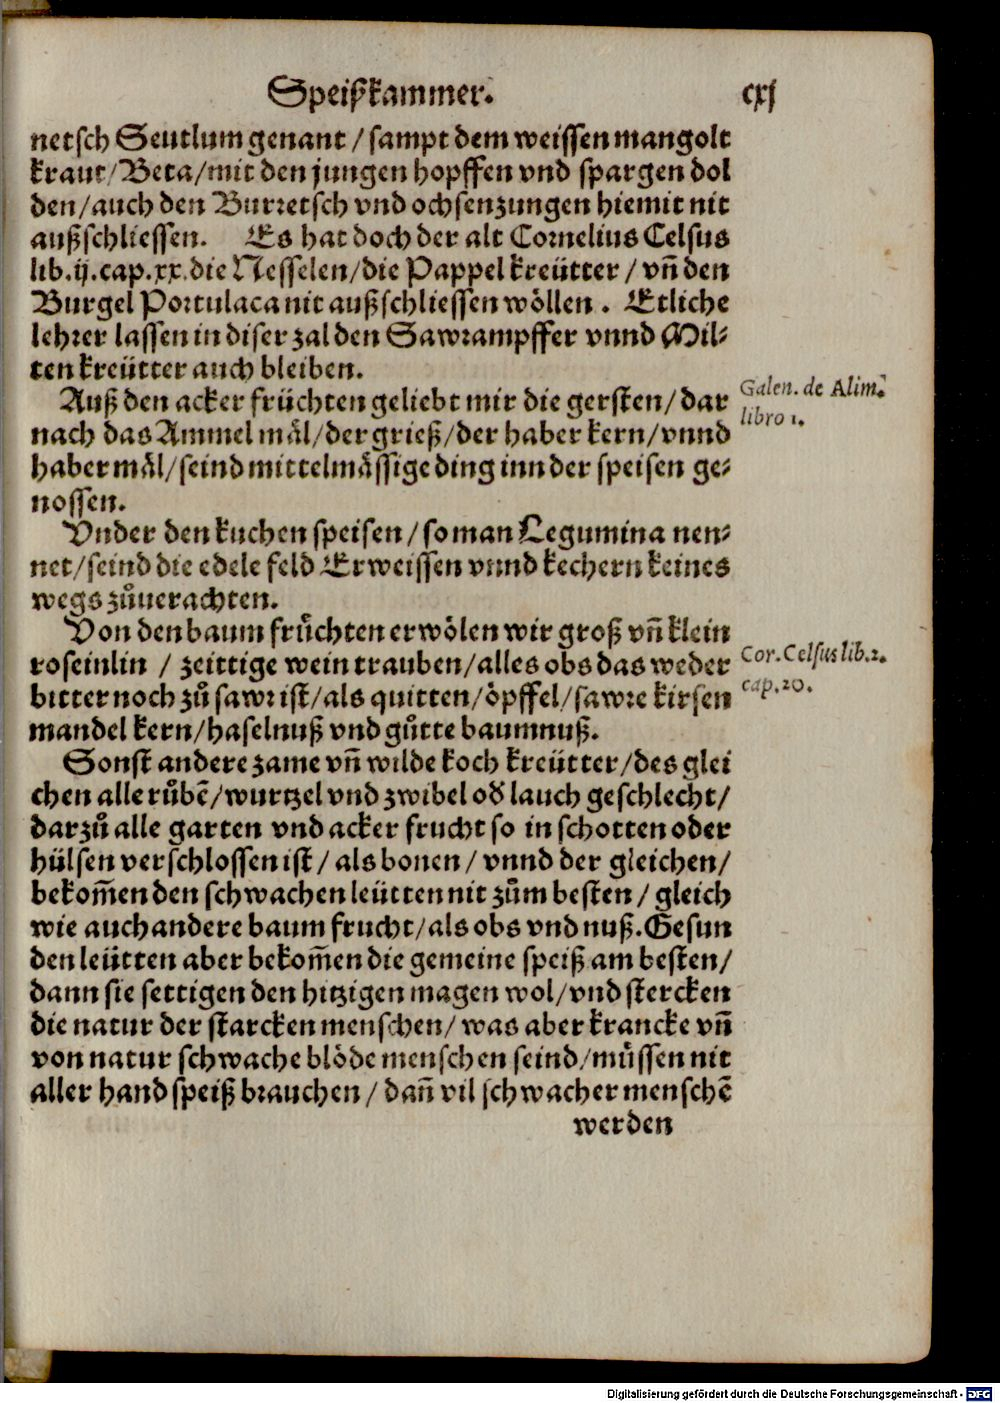 Speißkammer. cxj
netsch Seutlum genant / sampt dem weissen mangolt
kraut/Beta/mit den jungen hopffen vnd spargen dol
den/auch den Burretsch vnd ochsenzungen hiemit nit
außschliessen. Es hat doch der alt Cornelius Celsus
lib.ij.cap.xx.die Nesselen/die Pappel kreütter/vñ den
Burgel Portulaca nit außschliessen wöllen. Etliche
lehrer lassen in diser zal den Sawrampffer vnnd Mil⸗
ten kreütter auch bleiben.
Auß den acker früchten geliebt mir die gersten/dar
nach das Ammel mäl/der grieß/der haber kern/vnnd
haber mäl/seind mittelmässige ding inn der speisen ge⸗
nossen.
Galen. de Alim.
libro 1.
Vnder den kuchen speisen/so man Legumina nen⸗
net/seind die edele feld Erweissen vnnd kechern keines
wegs zůuerachten.
Von den baum früchten erwölen wir groß vñ klein
roseinlin / zeittige wein trauben/alles obs das weder
bitter noch zů sawr ist/als quitten/öpffel/sawre kirsen
mandel kern/haselnuß vnd gůtte baumnuß.
Cor. Celsus lib.2.
cap.20.
Sonst andere zame vñ wilde koch kreütter/des glei
chen alle růbẽ/wurtzel vnd zwibel od̛ lauch geschlecht/
darzů alle garten vnd acker frucht so in schotten oder
hülsen verschlossen ist/als bonen/vnnd der gleichen/
bekom̃en den schwachen leütten nit zům besten/gleich
wie auch andere baum frucht/als obs vnd nuß.Gesun
den leütten aber bekom̃en die gemeine speiß am besten/
dann sie settigen den hitzigen magen wol/vnd stercken
die natur der starcken menschen/was aber krancke vñ
von natur schwache blöde menschen seind/müssen nit
aller hand speiß brauchen / dañ vil schwacher menschẽ
werden
Digitalisierung gefördert durch die Deutsche Forschungsgemeinschaft - DFG